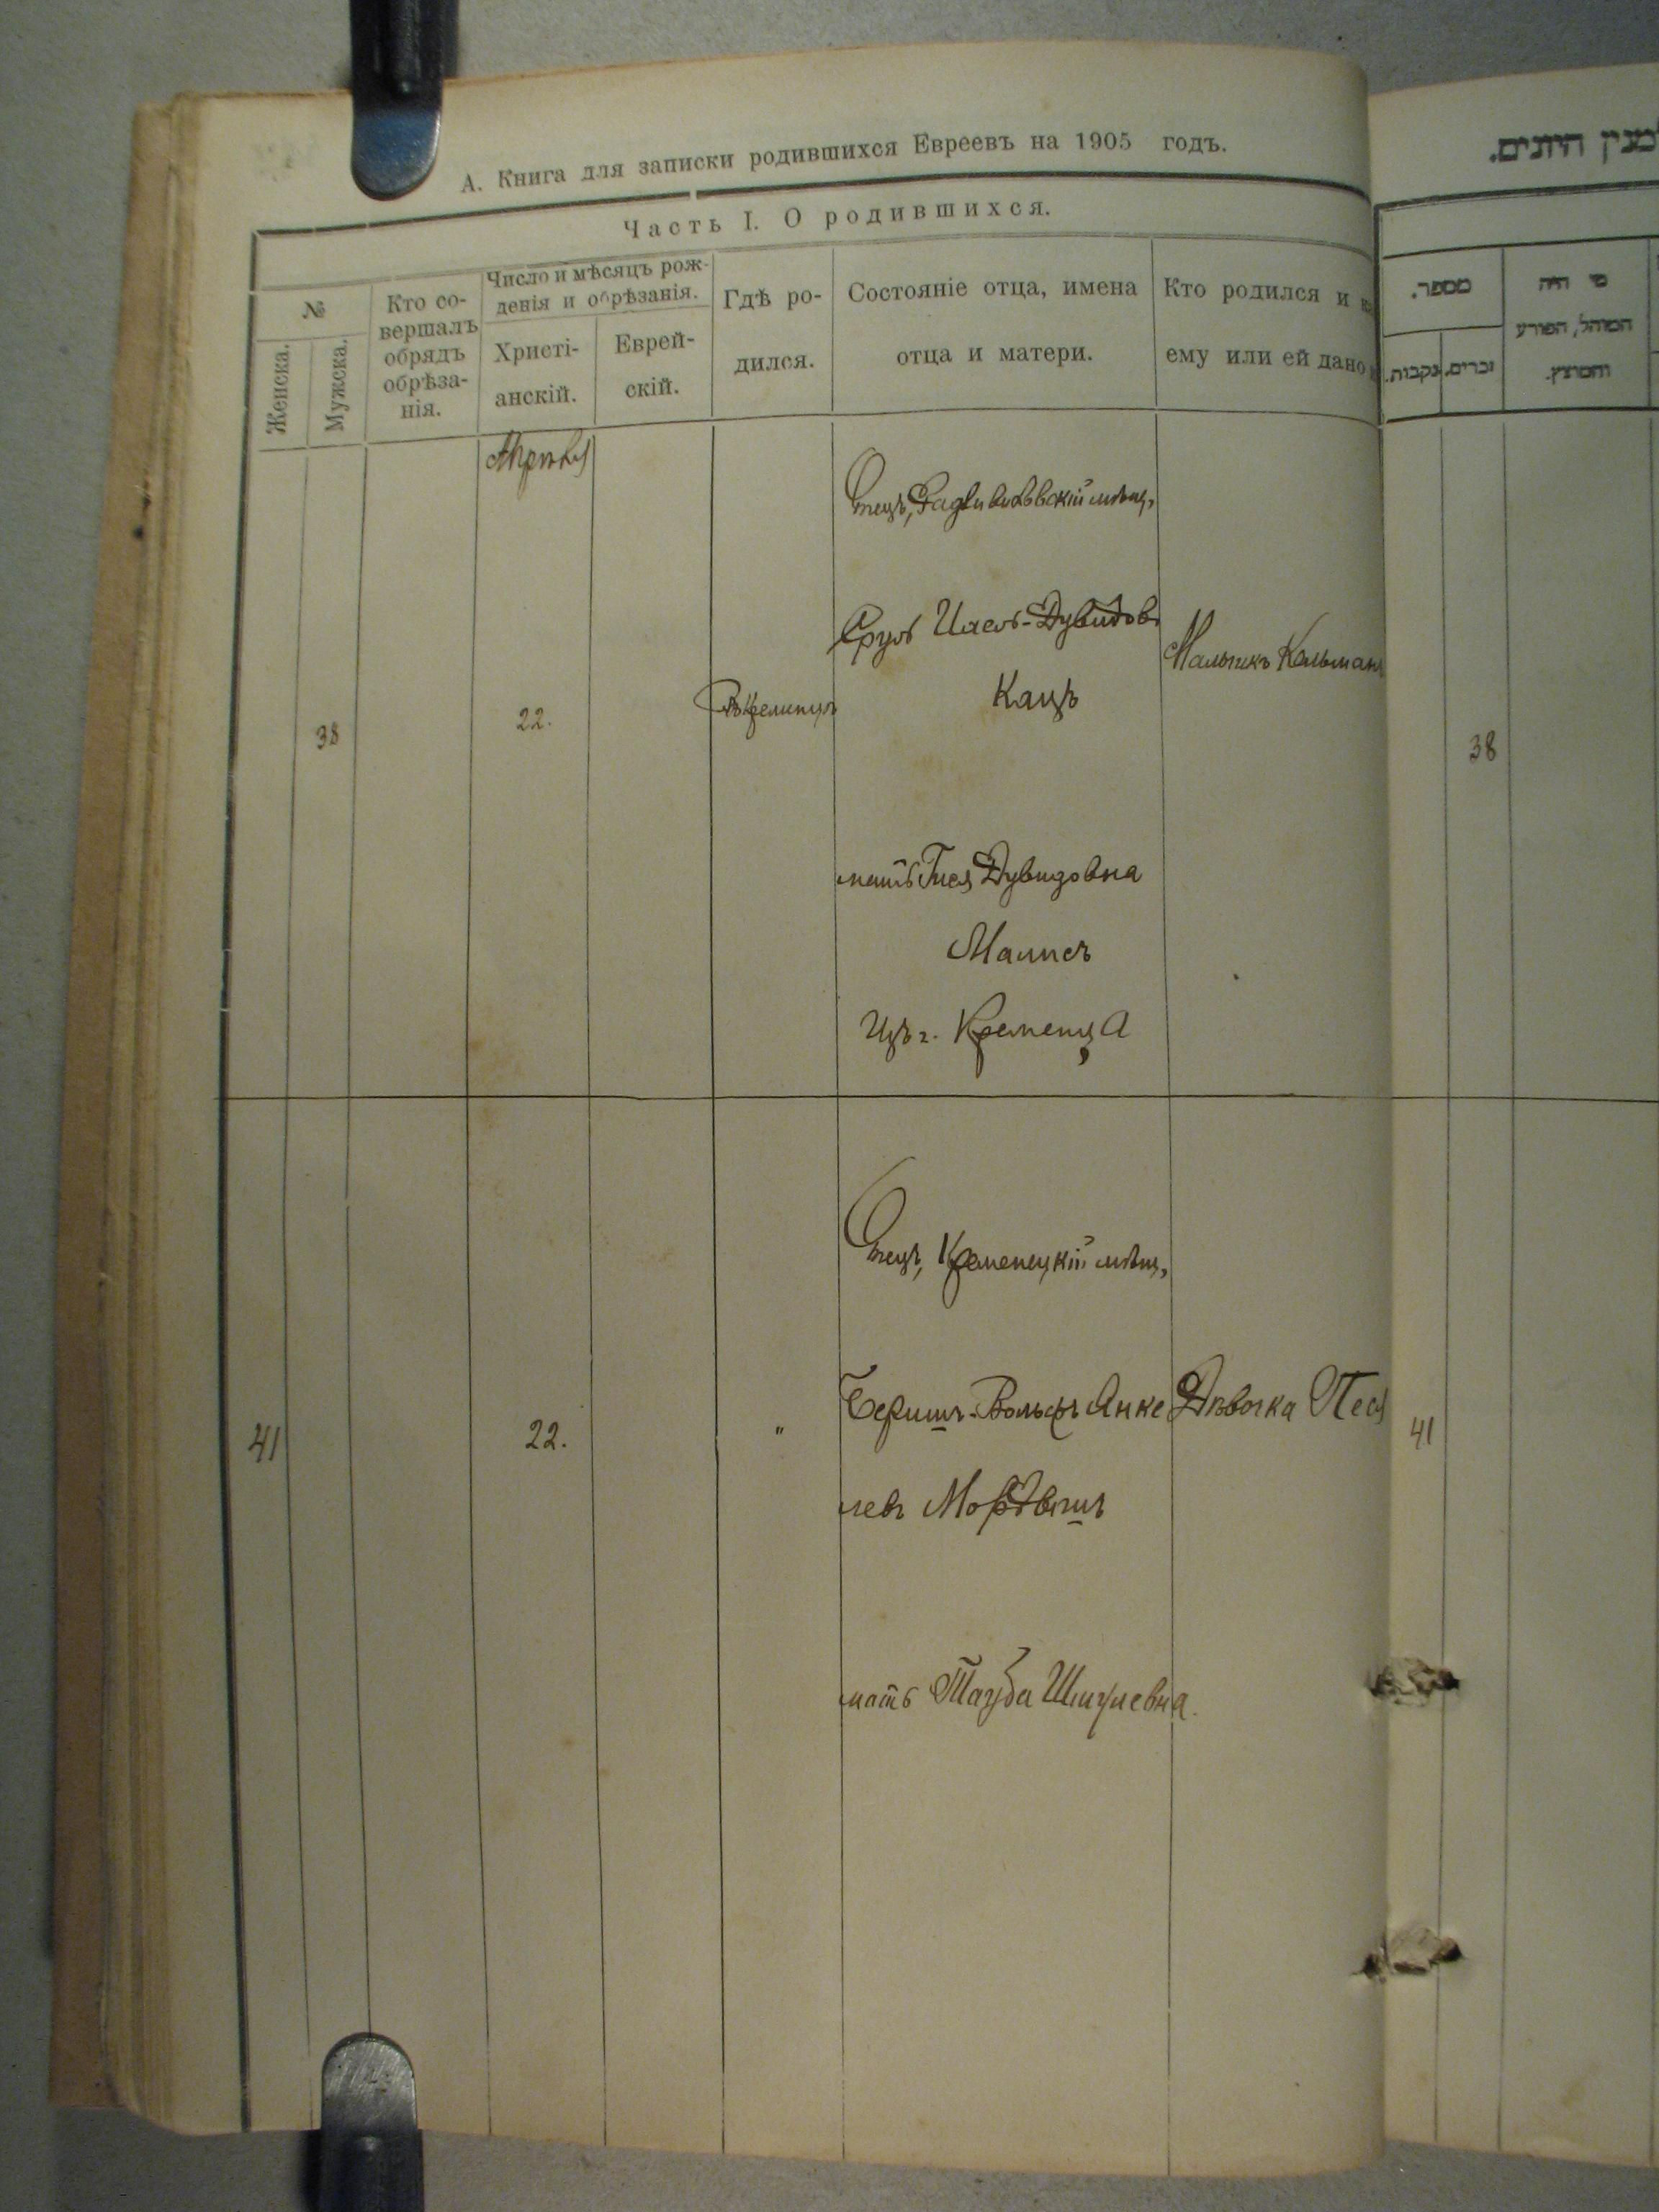 А. Книга для записки родившихся Евреевъ на 1905 годъ.
Часть I. О родившихся.
№
Женска.
Мужска.
Кто со-
вершалъ
обрядъ
обрѣза-
нія.
Число и мѣсяцъ рож-
денія и обрѣзанія.
Христі-
анскій.
Еврей-
скій.
Гдѣ ро-
дился.
Состояніе отца, имена
отца и матери.
Кто родился и
ему или ей дано
Апрѣля
38
22.
Въ Кременцѣ
Отецъ, Радзивиловскій мѣщ.
Сруль Ицеѳ-Дувидовъ
Кацъ
мать Гися Дувидовна
Малисъ
Изъ г. Кременца
Мальчикъ Кальманъ
41
22.
"
Отецъ, Кременецкій мѣщ,
Беришъ-Вольфъ Анке
левъ Мордышъ
мать Тауба Шмулевна.
Дѣвочка Песя
מספר.
נקבות.
זכרים.
מי היה
המוהל, הפורע
והמוצץ.
38
41